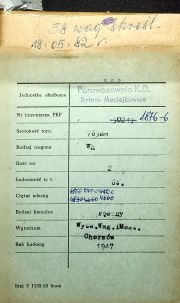 58 wag skreśl.
18.05.82 r
P.K.P.
Jednostka służbowa Parowozownia K.D.
Bytom-Maciejkowice
Nr inwentarza PKP 1876-6
Szerokość toru 785mm
Rodzaj wagonu
Ilość osi 2
Ładowność w t.
Ciężar własny
Rodzaj hamulca ręczny
Wytwórnia Wytw.Wag.iMos.
Chorzów
Rok budowy 1947